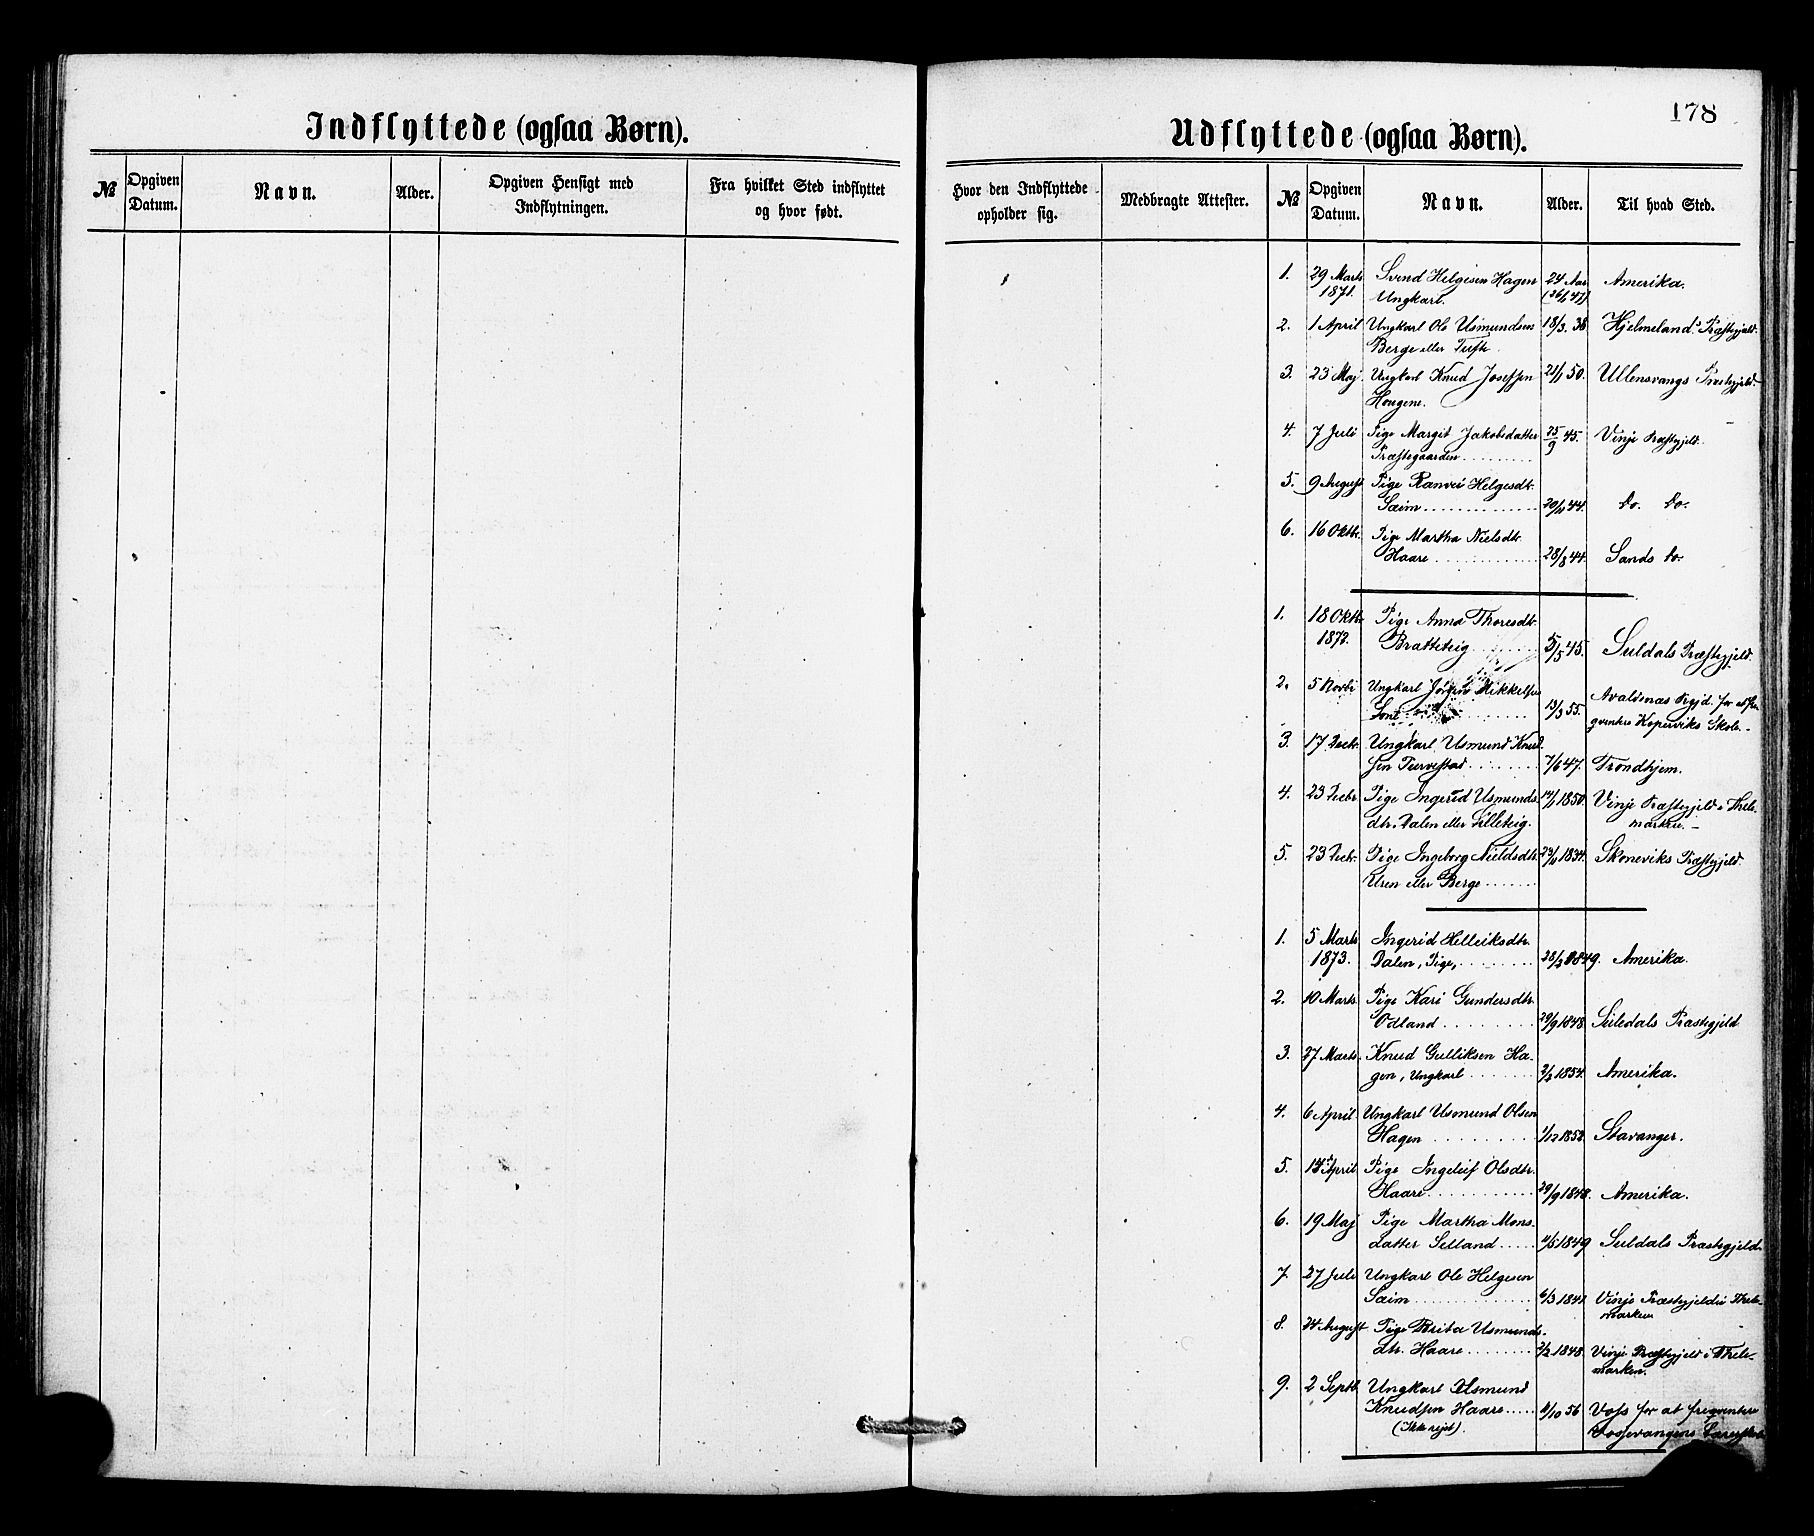 178
Indflyttede (ogsaa Børn).
№ Opgiven Datum. Navn. Alder. Opgiven Hensigt med Indflytningen. Fra hvilket Sted indflyttet og hvor født.
Hvor den Indflyttede opholder sig. Medbragte Attester.
Udflyttede (ogsaa Børn).
№ Opgiven Datum. Navn. Alder. Til hvad Sted.
1. 29 Marts Svend Helgesen Hagen 24 Aar Amerika.
1871. Ungkarl. (26/1 47)
2. 1 April Ungkarl Ole Usmundsen 18/3. 38 Hjelmelands Præstegjeld.
Berge eller Tufte.
3. 23 Maj Ungkarl Knud Josefsen 21/1 50. Ullensvangs Præstegjeld.
Hougene.
4. 7 Juli Pige Margit Jakobsdatter 25/9 45. Vinje Præstegjeld.
Præstegaarden
5. 9 August Pige Ranvei Helgesdtr.
Sæim 44. Do. Do.
6. 16 Oktbr. Pige Martha Nielsdtr.
Haare 28/8 44. Sands Do.
1. 18 Oktbr. Pige Anna Thoresdtr.
1872. Bratteteig 5/5 45. Suldals Præstegjeld.
2. 5 Novbr Ungkarl Mikkelsen 13/3 55. Avaldsnæs Pgjd. for at
Koperviks Skole.
3. 17 Decbr. Ungkarl Usmund Knud-
sen 7/6 47. Trondhjem.
4. 23 Decbr Pige Ingerid Usmunds- 14/1 1850. Vinje Præstegjeld i Thele-
dtr. Dalen eller Lilleteig. marken.
5. 23 Decbr. Pige Ingeborg Nieldsdtr. 1834. Skoneviks Præstegjeld.
Uren eller Berge
1. 5 Marts Ingerid Helleiksdtr.
1873. Dalen, Pige, 28/2 1849. Amerika.
2. 10 Marts. Pige Kari Gundersdtr.
Odland 29/9 1848. Suledals Præstegjeld
3. 27 Marts. Knud Gulliksen Ha-
gen, Ungkarl 2/2 1854. Amerika.
4. 6 April. Ungkarl Usmund Olsen
Hagen 1/12 1852. Stavanger.
5. April Pige Ingeleif Olsdtr.
Haare 29/9 1848. Amerika.
6. 19 Maj Pige Martha Mons-
datter Selland 4/5 1849 Suldals Præstegjeld.
7. 27 Juli Ungkarl Ole Helgesen
Sæim 6/3 1841. Vinje Præstegjeld i Thele-
marken
8. 24 August Pige Brita Usmunds-
dtr. Haare 2/2 1848. Vinje Præstegjeld i Thele-
marken.
9. 2 Septb. Ungkarl Usmund
Knudsen Haare 4/10 56 Voss for at freqventere
(Ikke rejst). Vossevangens